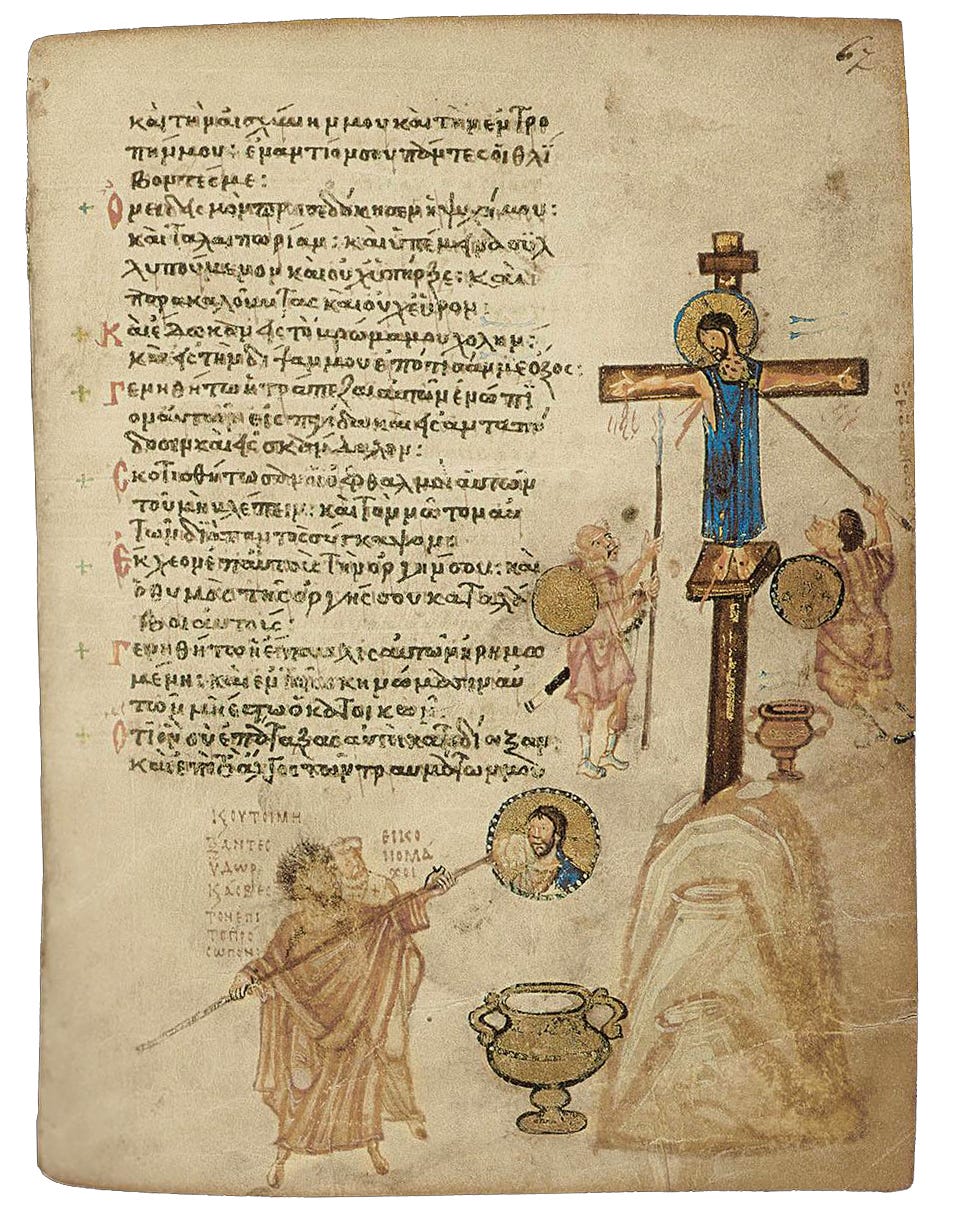 67
καὶ τὴν αἰσχύνην μου καὶ τὴν ἐντρο
πήν μου: ἐναντίον σου πάντες οἱ θλί
βοντές με:
Ὀνειδισμὸν προσεδόκησεν ἡ ψυχή μου:
καὶ ταλαιπωρίαν: καὶ ὑπέμεινα συλ
λυπούμενον καὶ οὐχ ὑπῆρξε: καὶ
παρακαλοῦντας καὶ οὐχ εὗρον:
Καὶ ἔδωκαν εἰς τὸ βρῶμά μου χολήν:
καὶ εἰς τὴν δίψαν μου ἐπότισάν με ὄξος:
Γενηθήτω ἡ τράπεζα αὐτῶν ἐνώπι
ον αὐτῶν εἰς παγίδα καὶ εἰς ἀνταπό
δοσιν καὶ εἰς σκάνδαλον:
Σκοτισθήτωσαν οἱ ὀφθαλμοὶ αὐτῶν
τοῦ μὴ βλέπειν: καὶ τὸν νῶτον αὐ
τῶν διὰ παντὸς σύγκαμψον:
Ἔκχεον ἐπ' αὐτοὺς τὴν ὀργήν σου: καὶ
ὁ θυμὸς τῆς ὀργῆς σου καταλά
βοι αὐτούς:
Γενηθήτω ἡ ἔπαυλις αὐτῶν ἠρημω
μένη: καὶ ἐν τοῖς σκηνώμασιν αὐ
τῶν μὴ ἔστω ὁ κατοικῶν:
Ὅτι ὃν σὺ ἐπάταξας αὐτοὶ κατεδίωξαν:
καὶ ἐπὶ τὸ ἄλγος τῶν τραυμάτων μου
ΥΔΩΡ
ΤΟΝ ΕΠΙ
ΤΟ ΠΡΟ
ΣΩΠΟΝ
ΕΙΚΟ
ΝΟΜΑ
ΧΟΙ